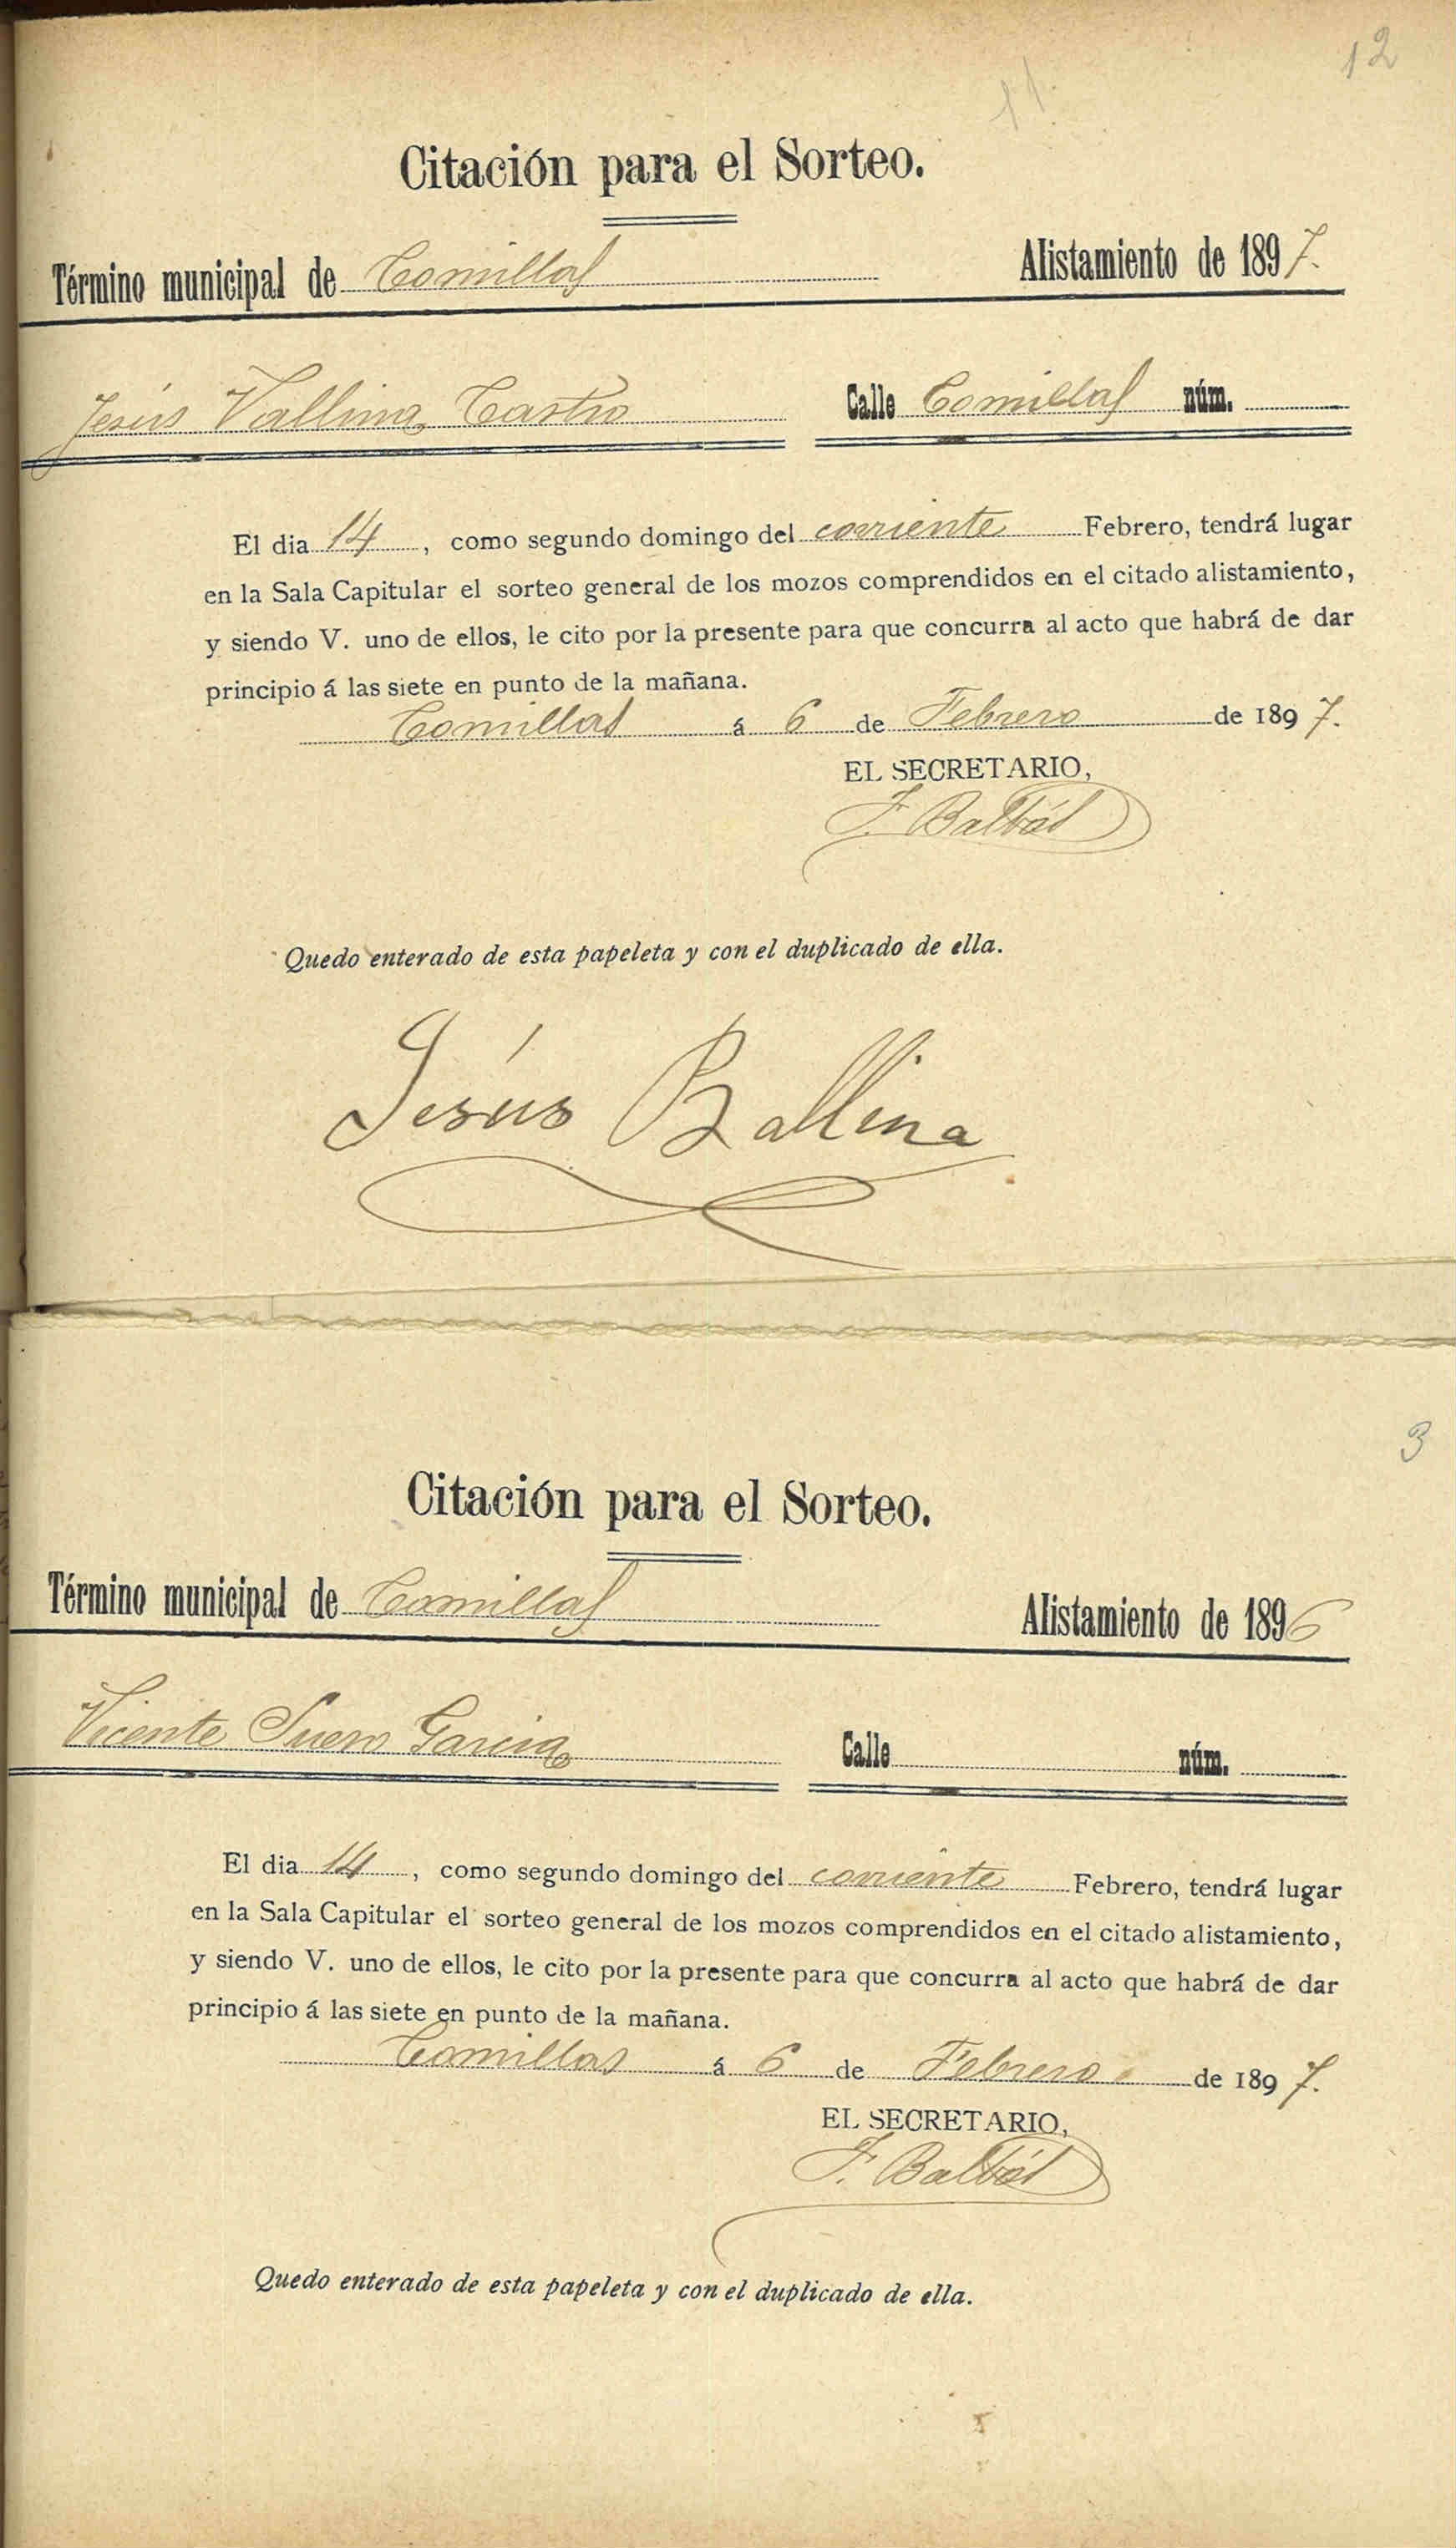 12
11
Citación para el Sorteo.
Término municipal de Comillas Alistamiento de 1897.
Jesús Vallina Castro Calle Comillas núm.
El dia 14, como segundo domingo del corriente Febrero, tendrá lugar
en la Sala Capitular el sorteo general de los mozos comprendidos en el citado alistamiento,
y siendo V. uno de ellos, le cito por la presente para que concurra al acto que habrá de dar
principio á las siete en punto de la mañana.
Comillas á 6 de Febrero de 1897.
EL SECRETARIO,
F. Balbás
Quedo enterado de esta papeleta y con el duplicado de ella.
Jesús Ballina
3
Citación para el Sorteo.
Término municipal de Comillas Alistamiento de 1896
Vicente Suero Garcia Calle núm.
El dia 14, como segundo domingo del corriente Febrero, tendrá lugar
en la Sala Capitular el sorteo general de los mozos comprendidos en el citado alistamiento,
y siendo V. uno de ellos, le cito por la presente para que concurra al acto que habrá de dar
principio á las siete en punto de la mañana.
Comillas á 6 de Febrero de 1897.
EL SECRETARIO,
F. Balbás
Quedo enterado de esta papeleta y con el duplicado de ella.